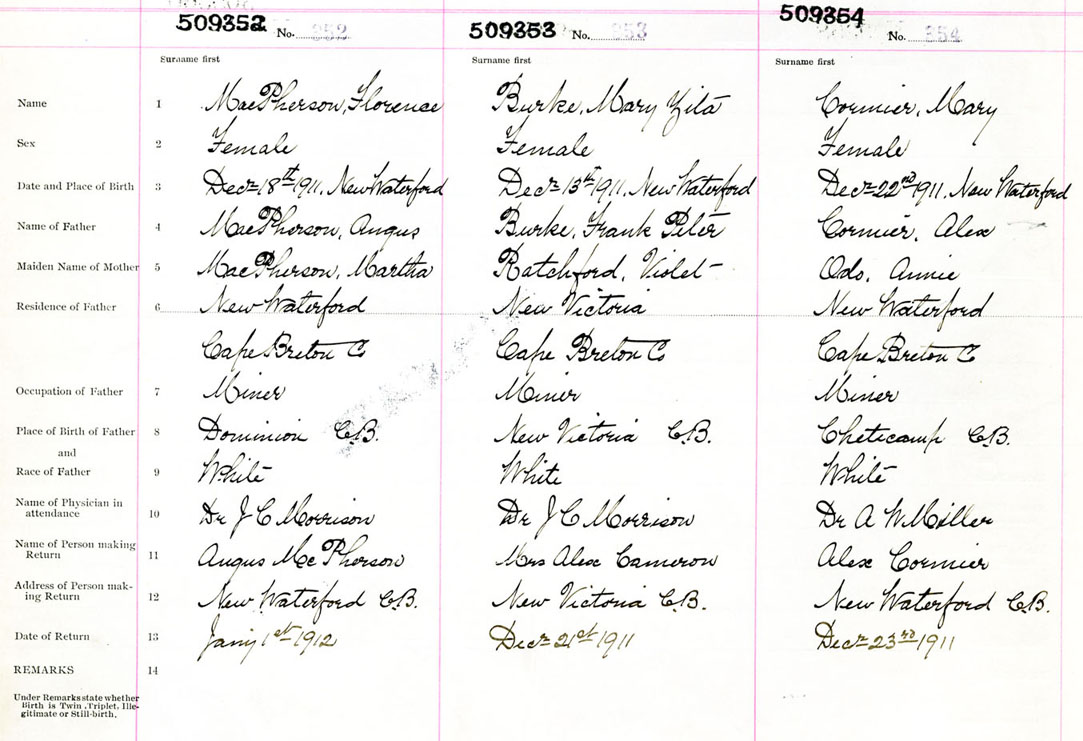 509352 No. 352 509353 No. 353 509354 No. 354
Surname first Surname first Surname first
Name 1 MacPherson, Florence Burke, Mary Zita Cormier, Mary
Sex 2 Female Female Female
Date and Place of Birth 3 Decr 18th 1911, New Waterford Decr 13th 1911, New Waterford Decr 22nd 1911, New Waterford
Name of Father 4 MacPherson, Angus Burke, Frank Peter Cormier, Alex
Maiden Name of Mother 5 MacPherson, Martha Ratchford, Violet Odo, Annie
Residence of Father 6 New Waterford New Victoria New Waterford
Cape Breton Co Cape Breton Co Cape Breton Co
Occupation of Father 7 Miner Miner Miner
Place of Birth of Father 8 Dominion C.B. New Victoria C.B. Cheticamp C.B.
and
Race of Father 9 White White White
Name of Physician in
attendance 10 Dr J C Morrison Dr J C Morrison Dr A W Miller
Name of Person making
Return 11 Angus McPherson Mrs Alex Cameron Alex Cormier
Address of Person mak-
ing Return 12 New Waterford C.B. New Victoria C.B. New Waterford C.B.
Date of Return 13 Jany 1st 1912 Decr 21st 1911 Decr 23rd 1911
REMARKS 14
Under Remarks state whether
Birth is Twin, Triplet, Ille-
gitimate or Still-birth.